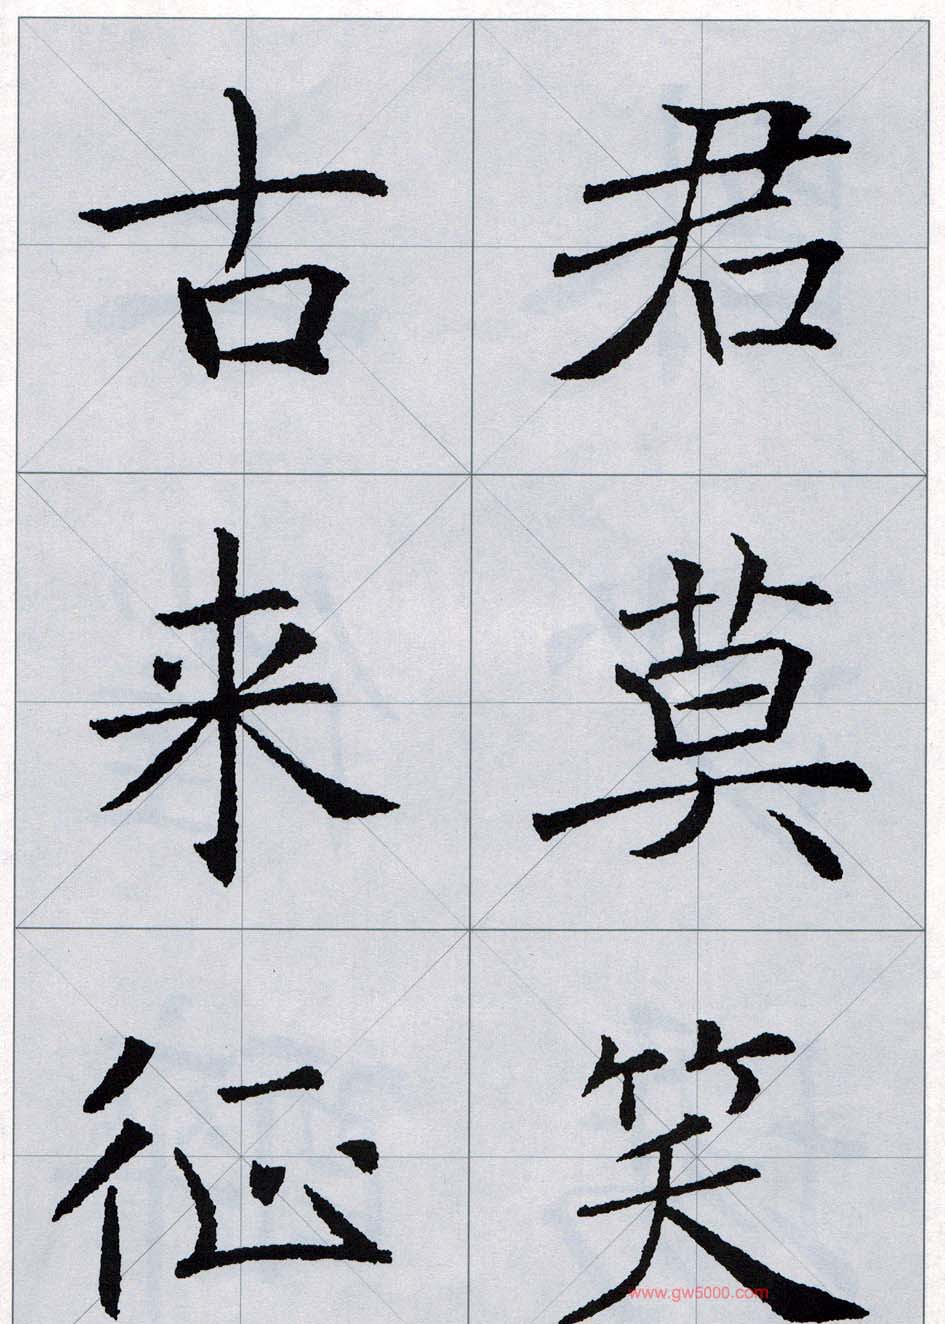 君莫笑
古来征
www.gw5000.com